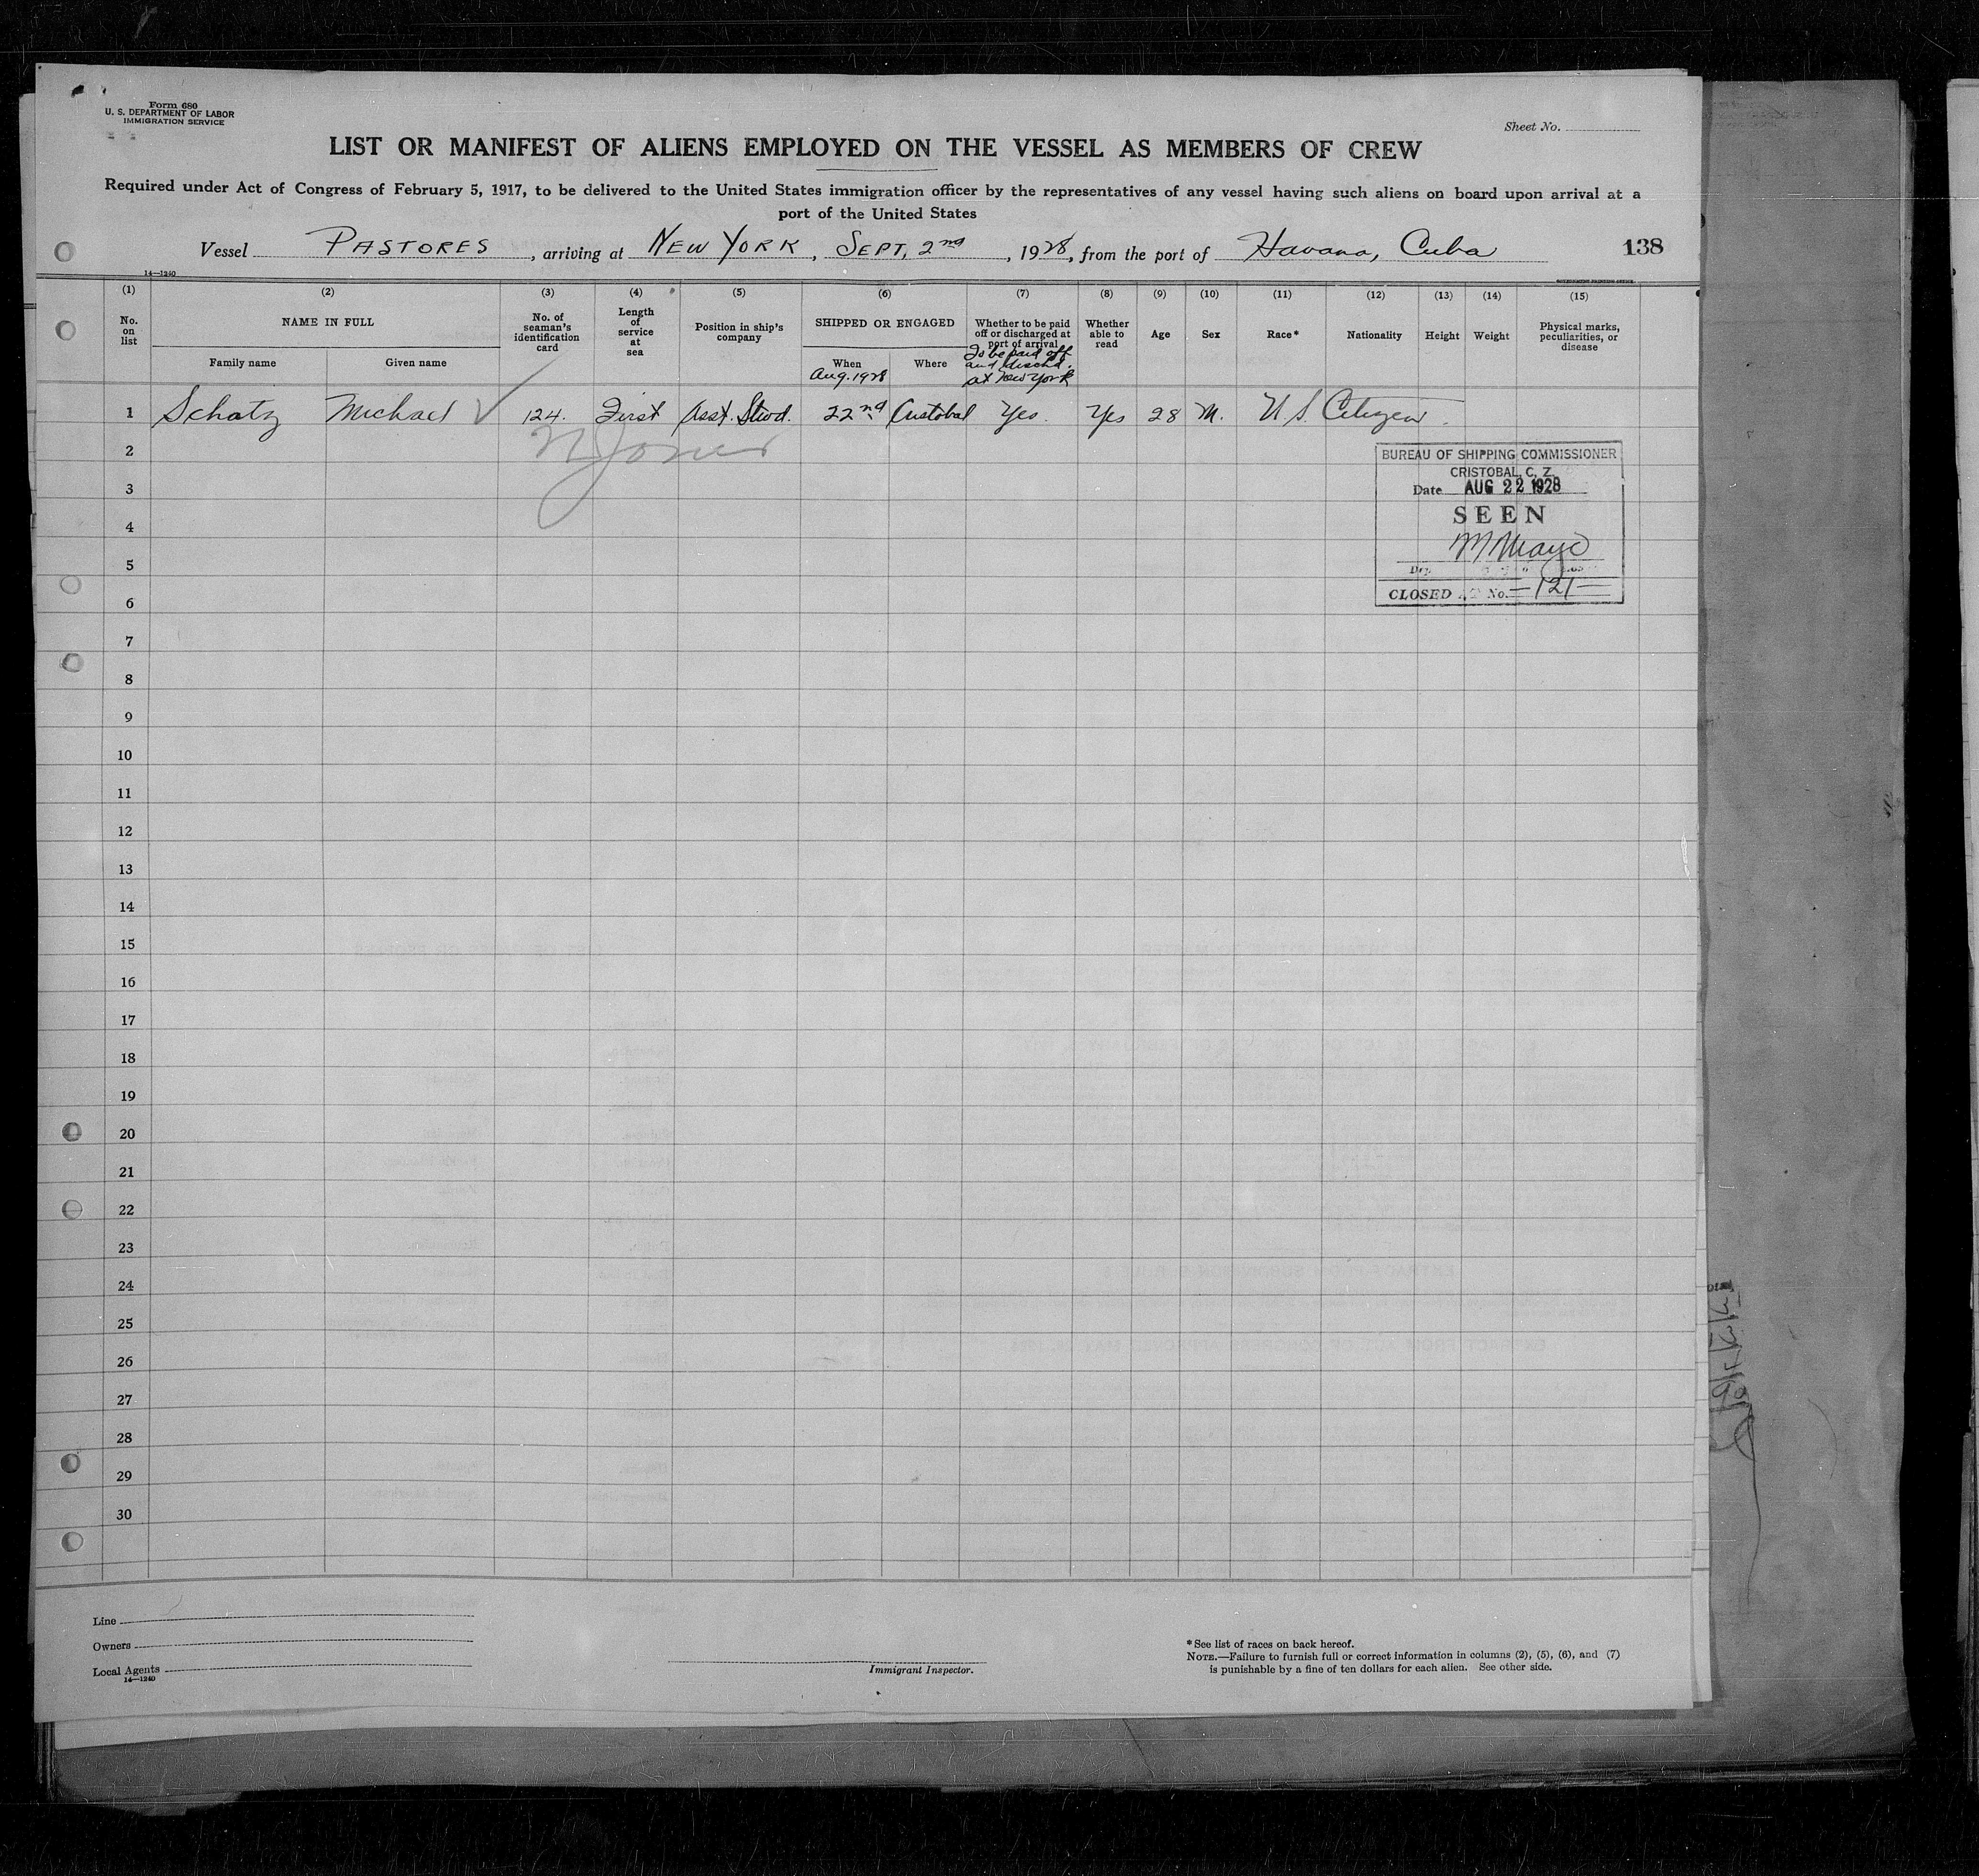 Form 680
U. S. DEPARTMENT OF LABOR
IMMIGRATION SERVICE
Sheet No.
LIST OR MANIFEST OF ALIENS EMPLOYED ON THE VESSEL AS MEMBERS OF CREW
Required under Act of Congress of February 5, 1917, to be delivered to the United States immigration officer by the representatives of any vessel having such aliens on board upon arrival at a
port of the United States
Vessel PASTORES, arriving at NEW YORK, SEPT. 2nd, 1928, from the port of Havana, Cuba 138
14—1240
GOVERNMENT PRINTING OFFICE
(1) (2) (3) (4) (5) (6) (7) (8) (9) (10) (11) (12) (13) (14) (15)
No. on list
NAME IN FULL
Family name Given name
No. of seaman's identification card
Length of service at sea
Position in ship's company
SHIPPED OR ENGAGED
When Where
Aug. 1928
Whether to be paid off or discharged at port of arrival
To be paid off and disch'd. at New York
Whether able to read
Age
Sex
Race*
Nationality
Height
Weight
Physical marks, peculiarities, or disease
1 Schatz Michael 124. First Asst. Stwd. 22nd Cristobal Yes. Yes 28 M. U.S. Citizen.
2
3
4
5
6
7
8
9
10
11
12
13
14
15
16
17
18
19
20
21
22
23
24
25
26
27
28
29
30
BUREAU OF SHIPPING COMMISSIONER
CRISTOBAL, C. Z.
Date AUG 22 1928
SEEN
CLOSED No. —121—
Line
Owners
Local Agents
14—1240
Immigrant Inspector.
*See list of races on back hereof.
NOTE.—Failure to furnish full or correct information in columns (2), (5), (6), and (7)
is punishable by a fine of ten dollars for each alien. See other side.